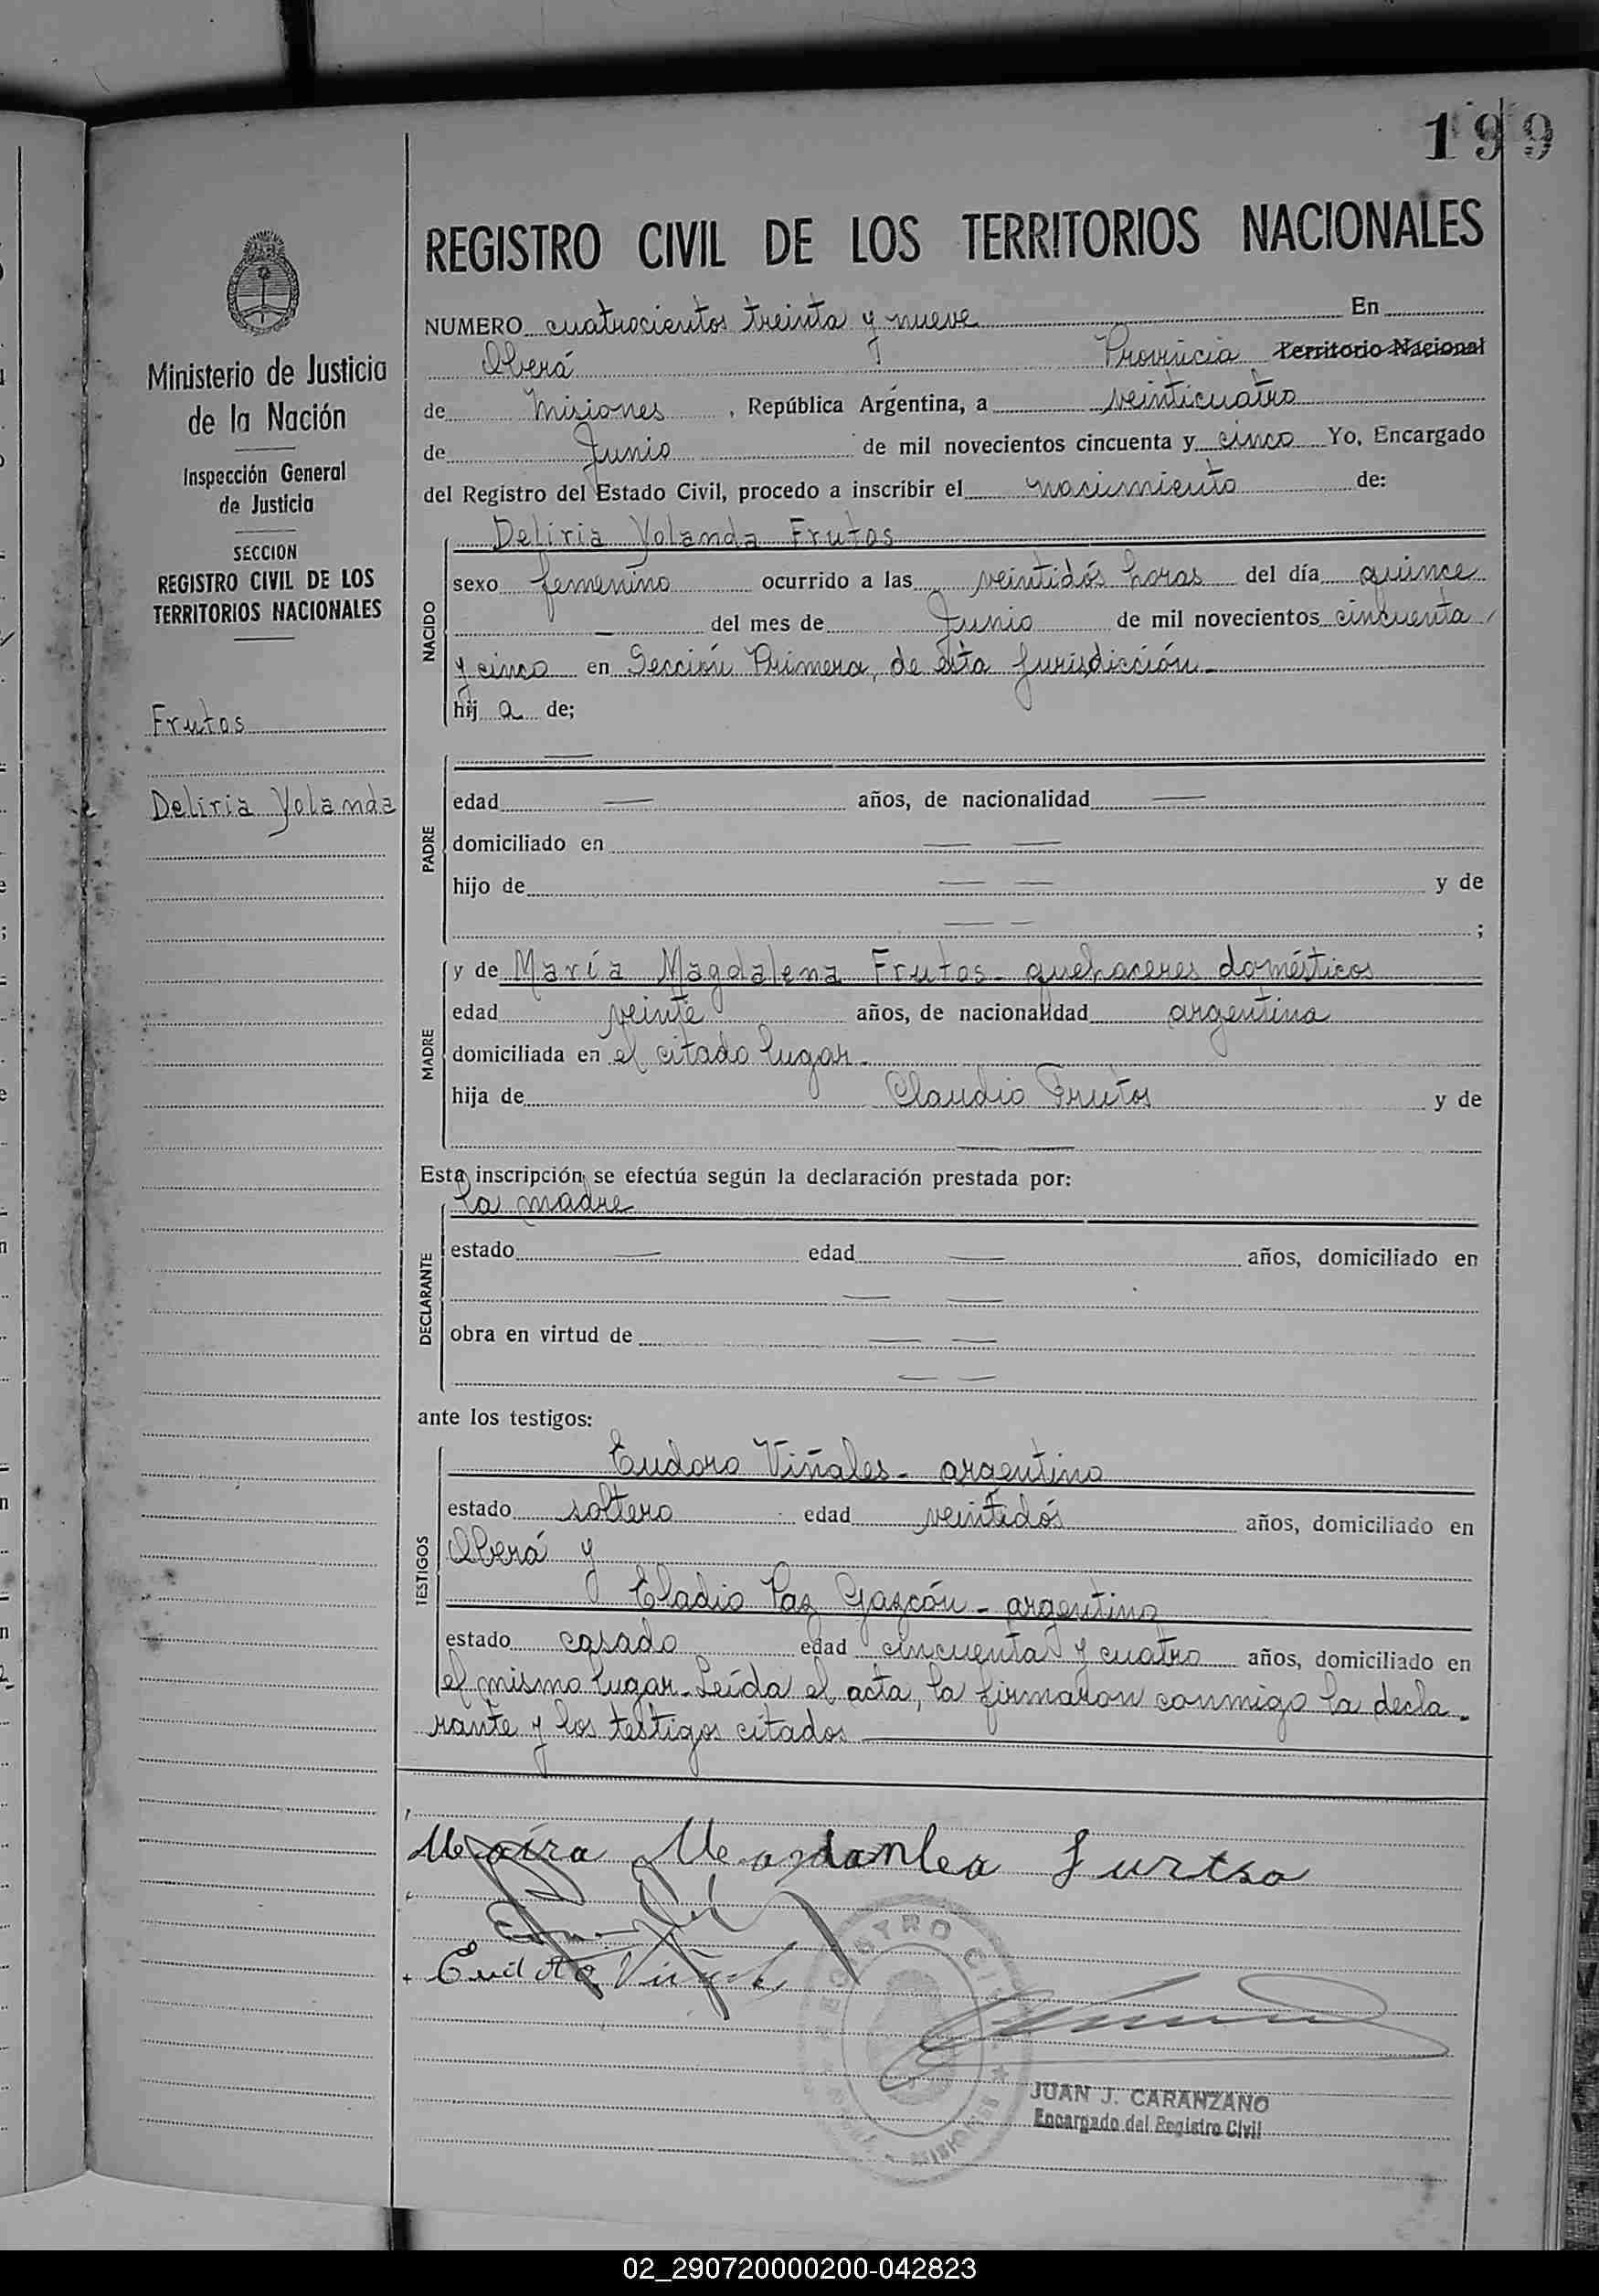 199
REGISTRO CIVIL DE LOS TERRITORIOS NACIONALES
Ministerio de Justicia
de la Nación
Inspección General
de Justicia
SECCION
REGISTRO CIVIL DE LOS
TERRITORIOS NACIONALES
Frutos
Deliria Yolanda
NUMERO cuatrocientos treinta y nueve En
Oberá Provincia Territorio Nacional
de Misiones, República Argentina, a veinticuatro
de Junio de mil novecientos cincuenta y cinco Yo, Encargado
del Registro del Estado Civil, procedo a inscribir el nacimiento de:
NACIDO
Deliria Yolanda Frutos
sexo femenino ocurrido a las veintidós horas del día quince
— del mes de Junio de mil novecientos cincuenta
y cinco en Sección Primera, de esta jurisdicción-
hij a de;
PADRE
—
edad — años, de nacionalidad —
domiciliado en — —
hijo de — — y de
— — ;
MADRE
y de María Magdalena Frutos- quehaceres domésticos
edad veinte años, de nacionalidad argentina
domiciliada en el citado lugar.
hija de Claudio Frutos y de
— —
Esta inscripción se efectúa según la declaración prestada por:
DECLARANTE
la madre
estado — edad — años, domiciliado en
— —
obra en virtud de — —
— —
ante los testigos:
TESTIGOS
Eudoro Viñales- argentino
estado soltero edad veintidós años, domiciliado en
Oberá y
Eladio Paz Gazcón- argentino
estado casado edad cincuenta y cuatro años, domiciliado en
el mismo lugar-Leída el acta, la firmaron conmigo la decla-
rante y los testigos citados
JUAN J. CARANZANO
Encargado del Registro Civil
02_290720000200-042823